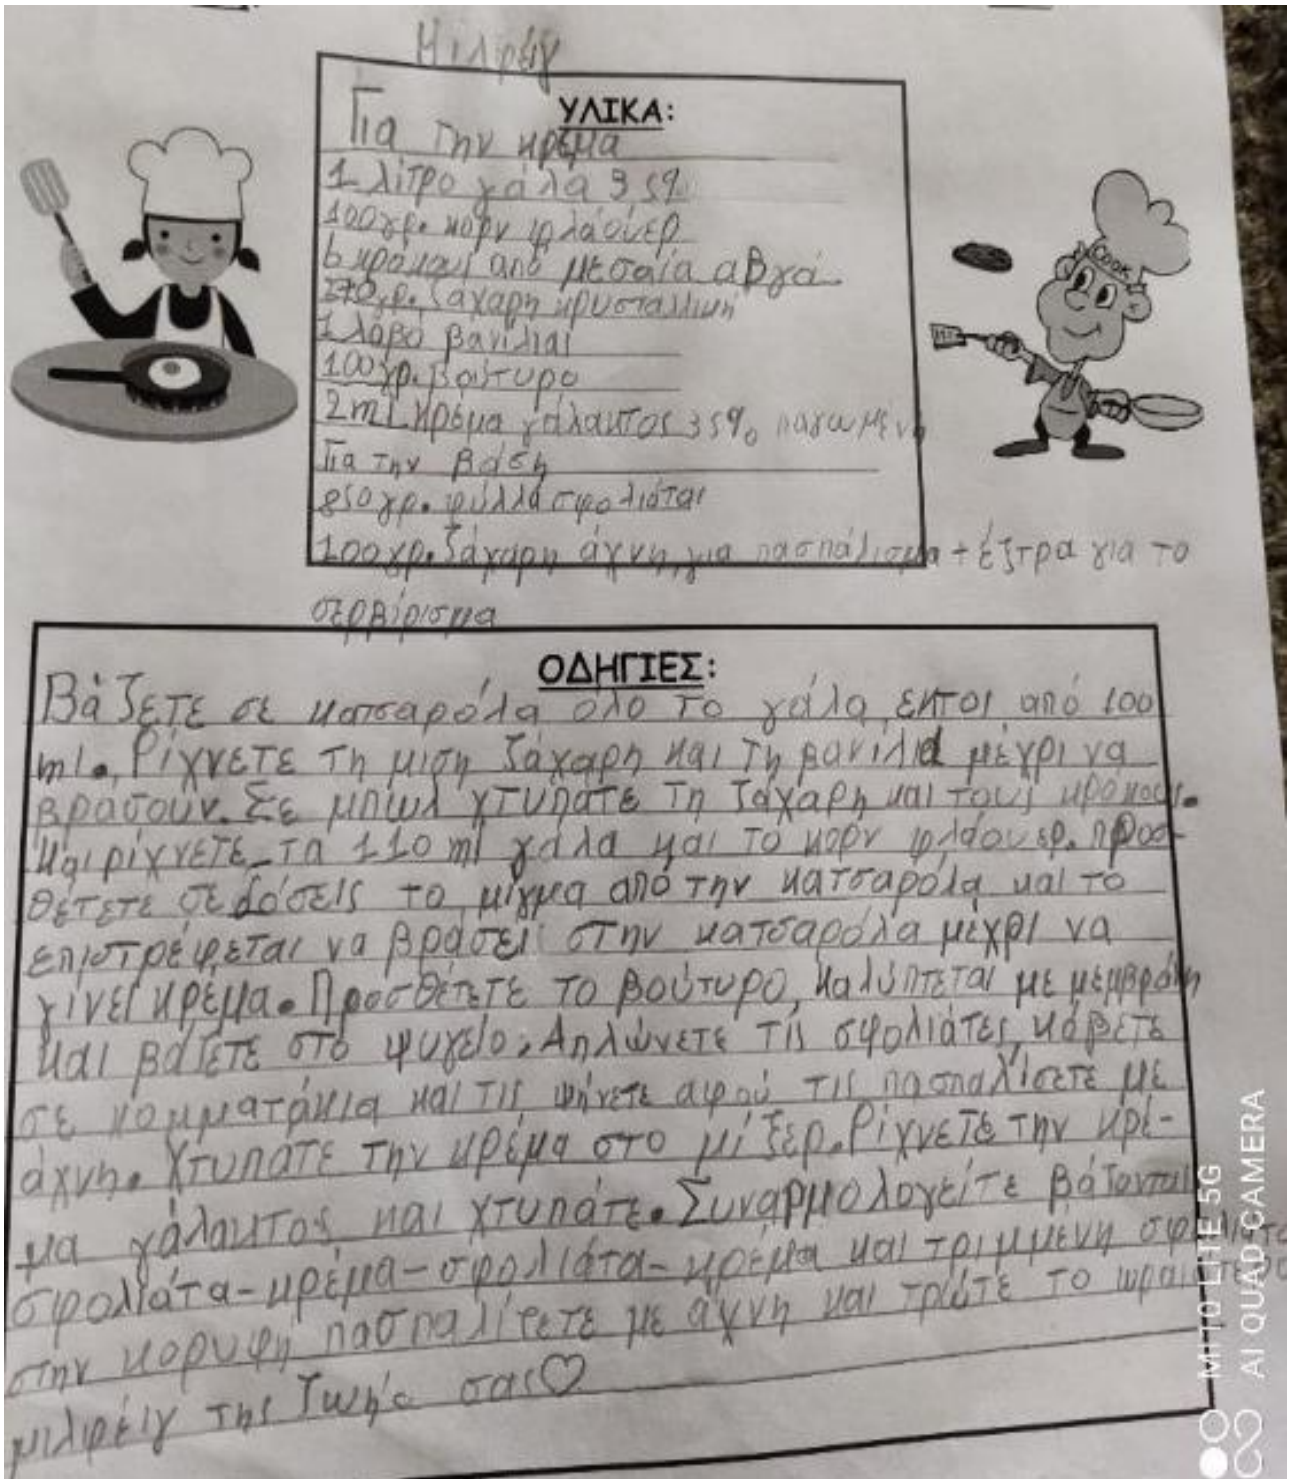 Μιλφέιγ
ΥΛΙΚΑ:
Για την κρέμα
1 λίτρο γάλα 3 5%
100γρ. κορν φλάουερ
6 κρόκοι από μεσαία αβγά
270γρ. ζάχαρη κρυσταλλική
1 λοβό βανίλιας
100γρ. βούτυρο
2ml κρέμα γάλακτος 35% παγωμένη
Για την βάση
850γρ. φύλλα σφολιάτας
100γρ. ζάχαρη άχνη για πασπάλισμα + έξτρα για το
σερβίρισμα
Cook
ΟΔΗΓΙΕΣ:
Βάζετε σε κατσαρόλα όλο το γάλα εκτος από 100
ml. Ρίχνετε τη μιση ζάχαρη και τη βανίλια μέχρι να
βράσουν. Σε μπωλ χτυπάτε τη ζάχαρη και τους κρόκους.
Και ρίχνετε τα 110 ml γάλα και το κορν φλάουερ. Προσ-
θέτετε σε δόσεις το μίγμα από την κατσαρόλα και το
επιστρέφεται να βράσει στην κατσαρόλα μέχρι να
γίνει κρέμα. Προσθέτετε το βούτυρο, καλύπτεται με μεμβράνη
και βάζετε στο ψυγείο. Απλώνετε τις σφολιάτες, κόβετε
σε κομματάκια και τις ψήνετε αφού τις πασπαλίσετε με
άχνη. Χτυπάτε την κρέμα στο μίξερ. Ρίχνετε την κρέ-
μα γάλακτος και χτυπάτε. Συναρμολογείτε βάζονται
σφολιάτα-κρέμα-σφολιάτα-κρέμα και τριμμένη σφολιάτα
στην κορυφή πασπαλίζετε με άχνη και τρώτε το ωραιότερο
μιλφέιγ της ζωής σας♡
MI 10 LITE 5G
AI QUAD CAMERA